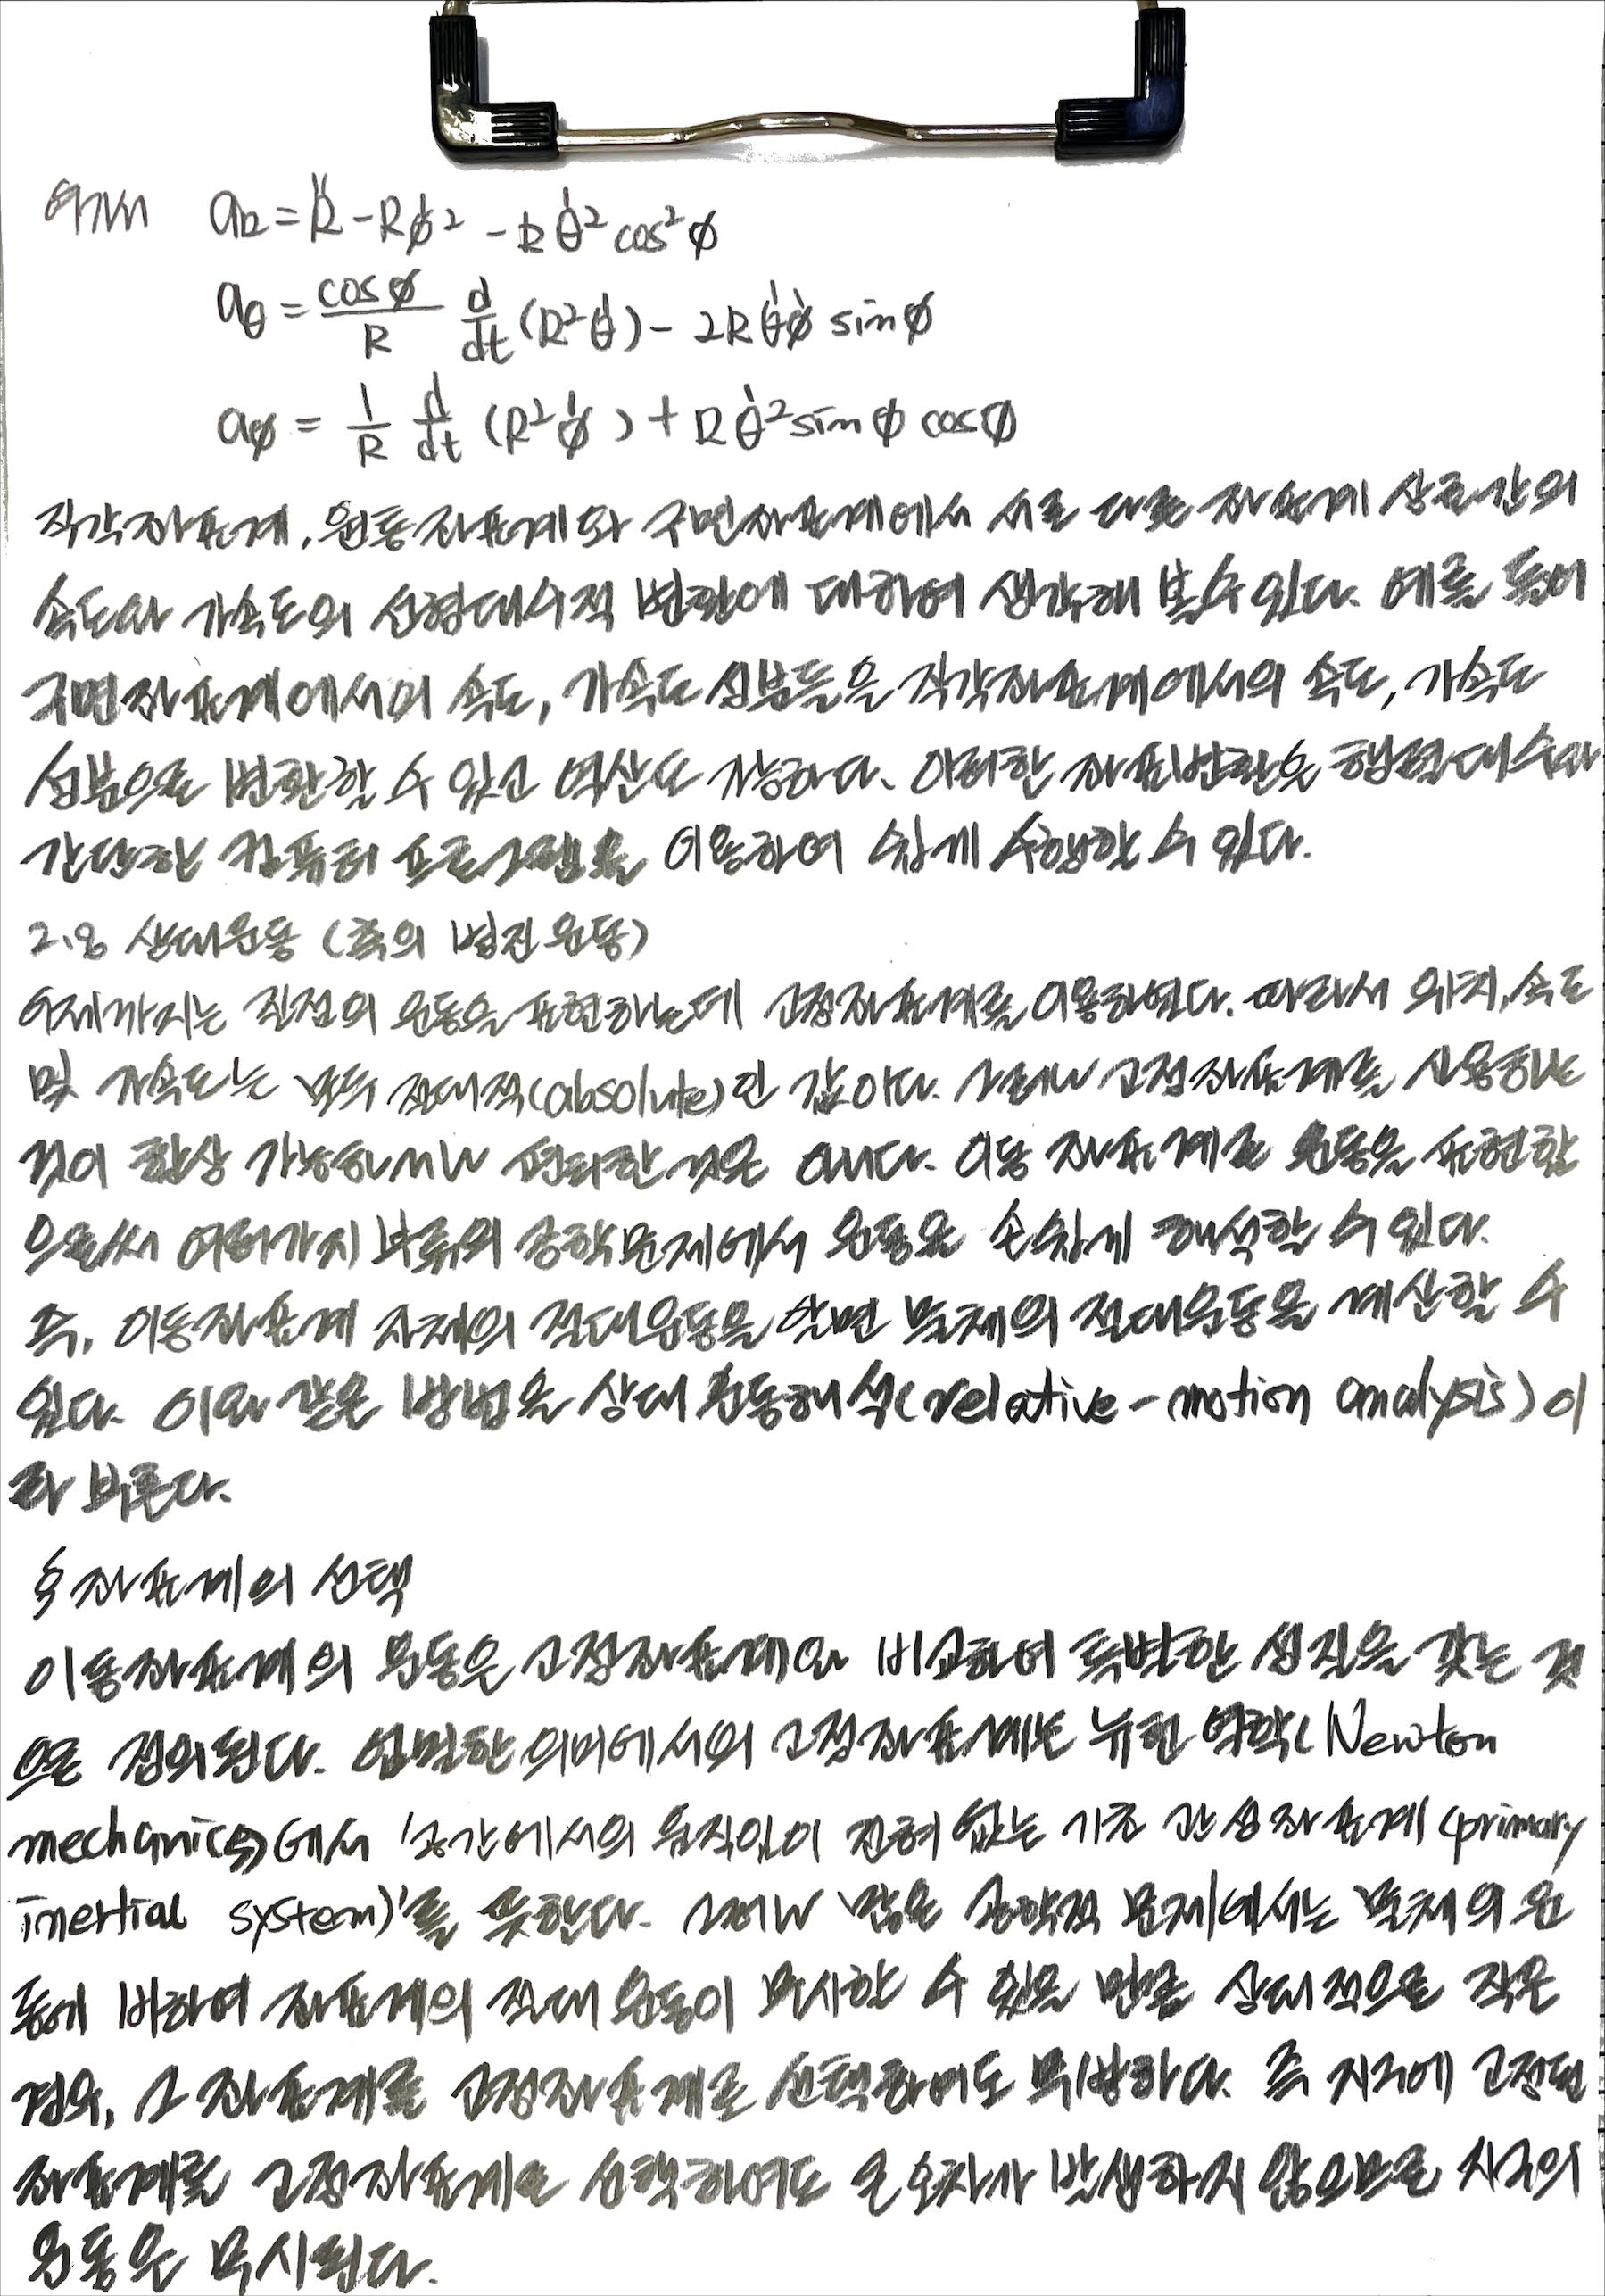 여기서 a_R = R̈ - Rφ̇² - Rθ̇² cos²φ
a_θ = cosφ/R d/dt (R²θ̇) - 2Rθ̇φ̇ sinφ
a_φ = 1/R d/dt (R²φ̇) + Rθ̇² sinφ cosφ
직각좌표계, 원통좌표계와 구면좌표계에서 서로 다른 좌표계 상호간의
속도와 가속도의 선형대수적 변환에 대하여 생각해 볼 수 있다. 예를 들어
구면좌표계에서의 속도, 가속도 성분들을 직각좌표계에서의 속도, 가속도
성분으로 변환할 수 있고 역산도 가능하다. 이러한 좌표변환은 행렬대수와
간단한 컴퓨터 프로그램을 이용하여 쉽게 수행할 수 있다.
2.8 상대운동 (축의 병진운동)
이제까지는 질점의 운동을 표현하는데 고정좌표계를 이용하였다. 따라서 위치, 속도
및 가속도는 모두 절대적(absolute)인 값이다. 그러나 고정좌표계를 사용하는
것이 항상 가능하거나 편리한 것은 아니다. 이동 좌표계로 운동을 표현함
으로써 여러가지 부류의 공학문제에서 운동을 손쉽게 해석할 수 있다.
즉, 이동좌표계 자체의 절대운동을 알면 물체의 절대운동을 계산할 수
있다. 이와 같은 방법을 상대운동해석(relative-motion analysis)이
라 부른다.
§ 좌표계의 선택
이동좌표계의 운동은 고정좌표계와 비교하여 특별한 성질을 갖는 것
으로 정의된다. 엄밀한 의미에서의 고정좌표계는 뉴턴 역학(Newton
mechanics)에서 '공간에서의 움직임이 전혀 없는 기초 관성좌표계 (primary
inertial system)'를 뜻한다. 그러나 많은 공학적 문제에서는 물체의 운
동에 비하여 좌표계의 절대 운동이 무시할 수 있을 만큼 상대적으로 작은
경우, 그 좌표계를 고정좌표계로 선택하여도 무방하다. 즉 지구에 고정된
좌표계를 고정좌표계로 선택하여도 큰 오차가 발생하지 않으므로 지구의
운동은 무시된다.